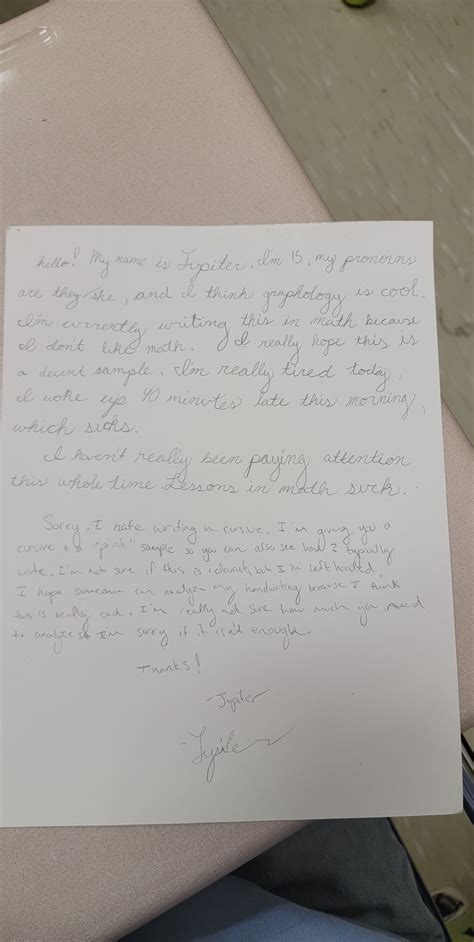 hello! My name is Jupiter. I'm 15, my pronouns
are they/she, and I think graphology is cool.
I'm currently writing this in math because
I don't like math. I really hope this is
a decent sample. I'm really tired today,
I woke up 40 minutes late this morning,
which sucks.
I haven't really been paying attention
this whole time. Lessons in math suck.
Sorry, I hate writing in cursive. I'm giving you a
cursive & a "print" sample so you can also see how I typically
write. I'm not sure if this is relevant, but I'm left handed.
I hope someone can analyze my handwriting because I think
this is really cool. I'm really not sure how much you need
to analyze so I'm sorry if it isn't enough.
Thanks!
-Jupiter
-Jupiter